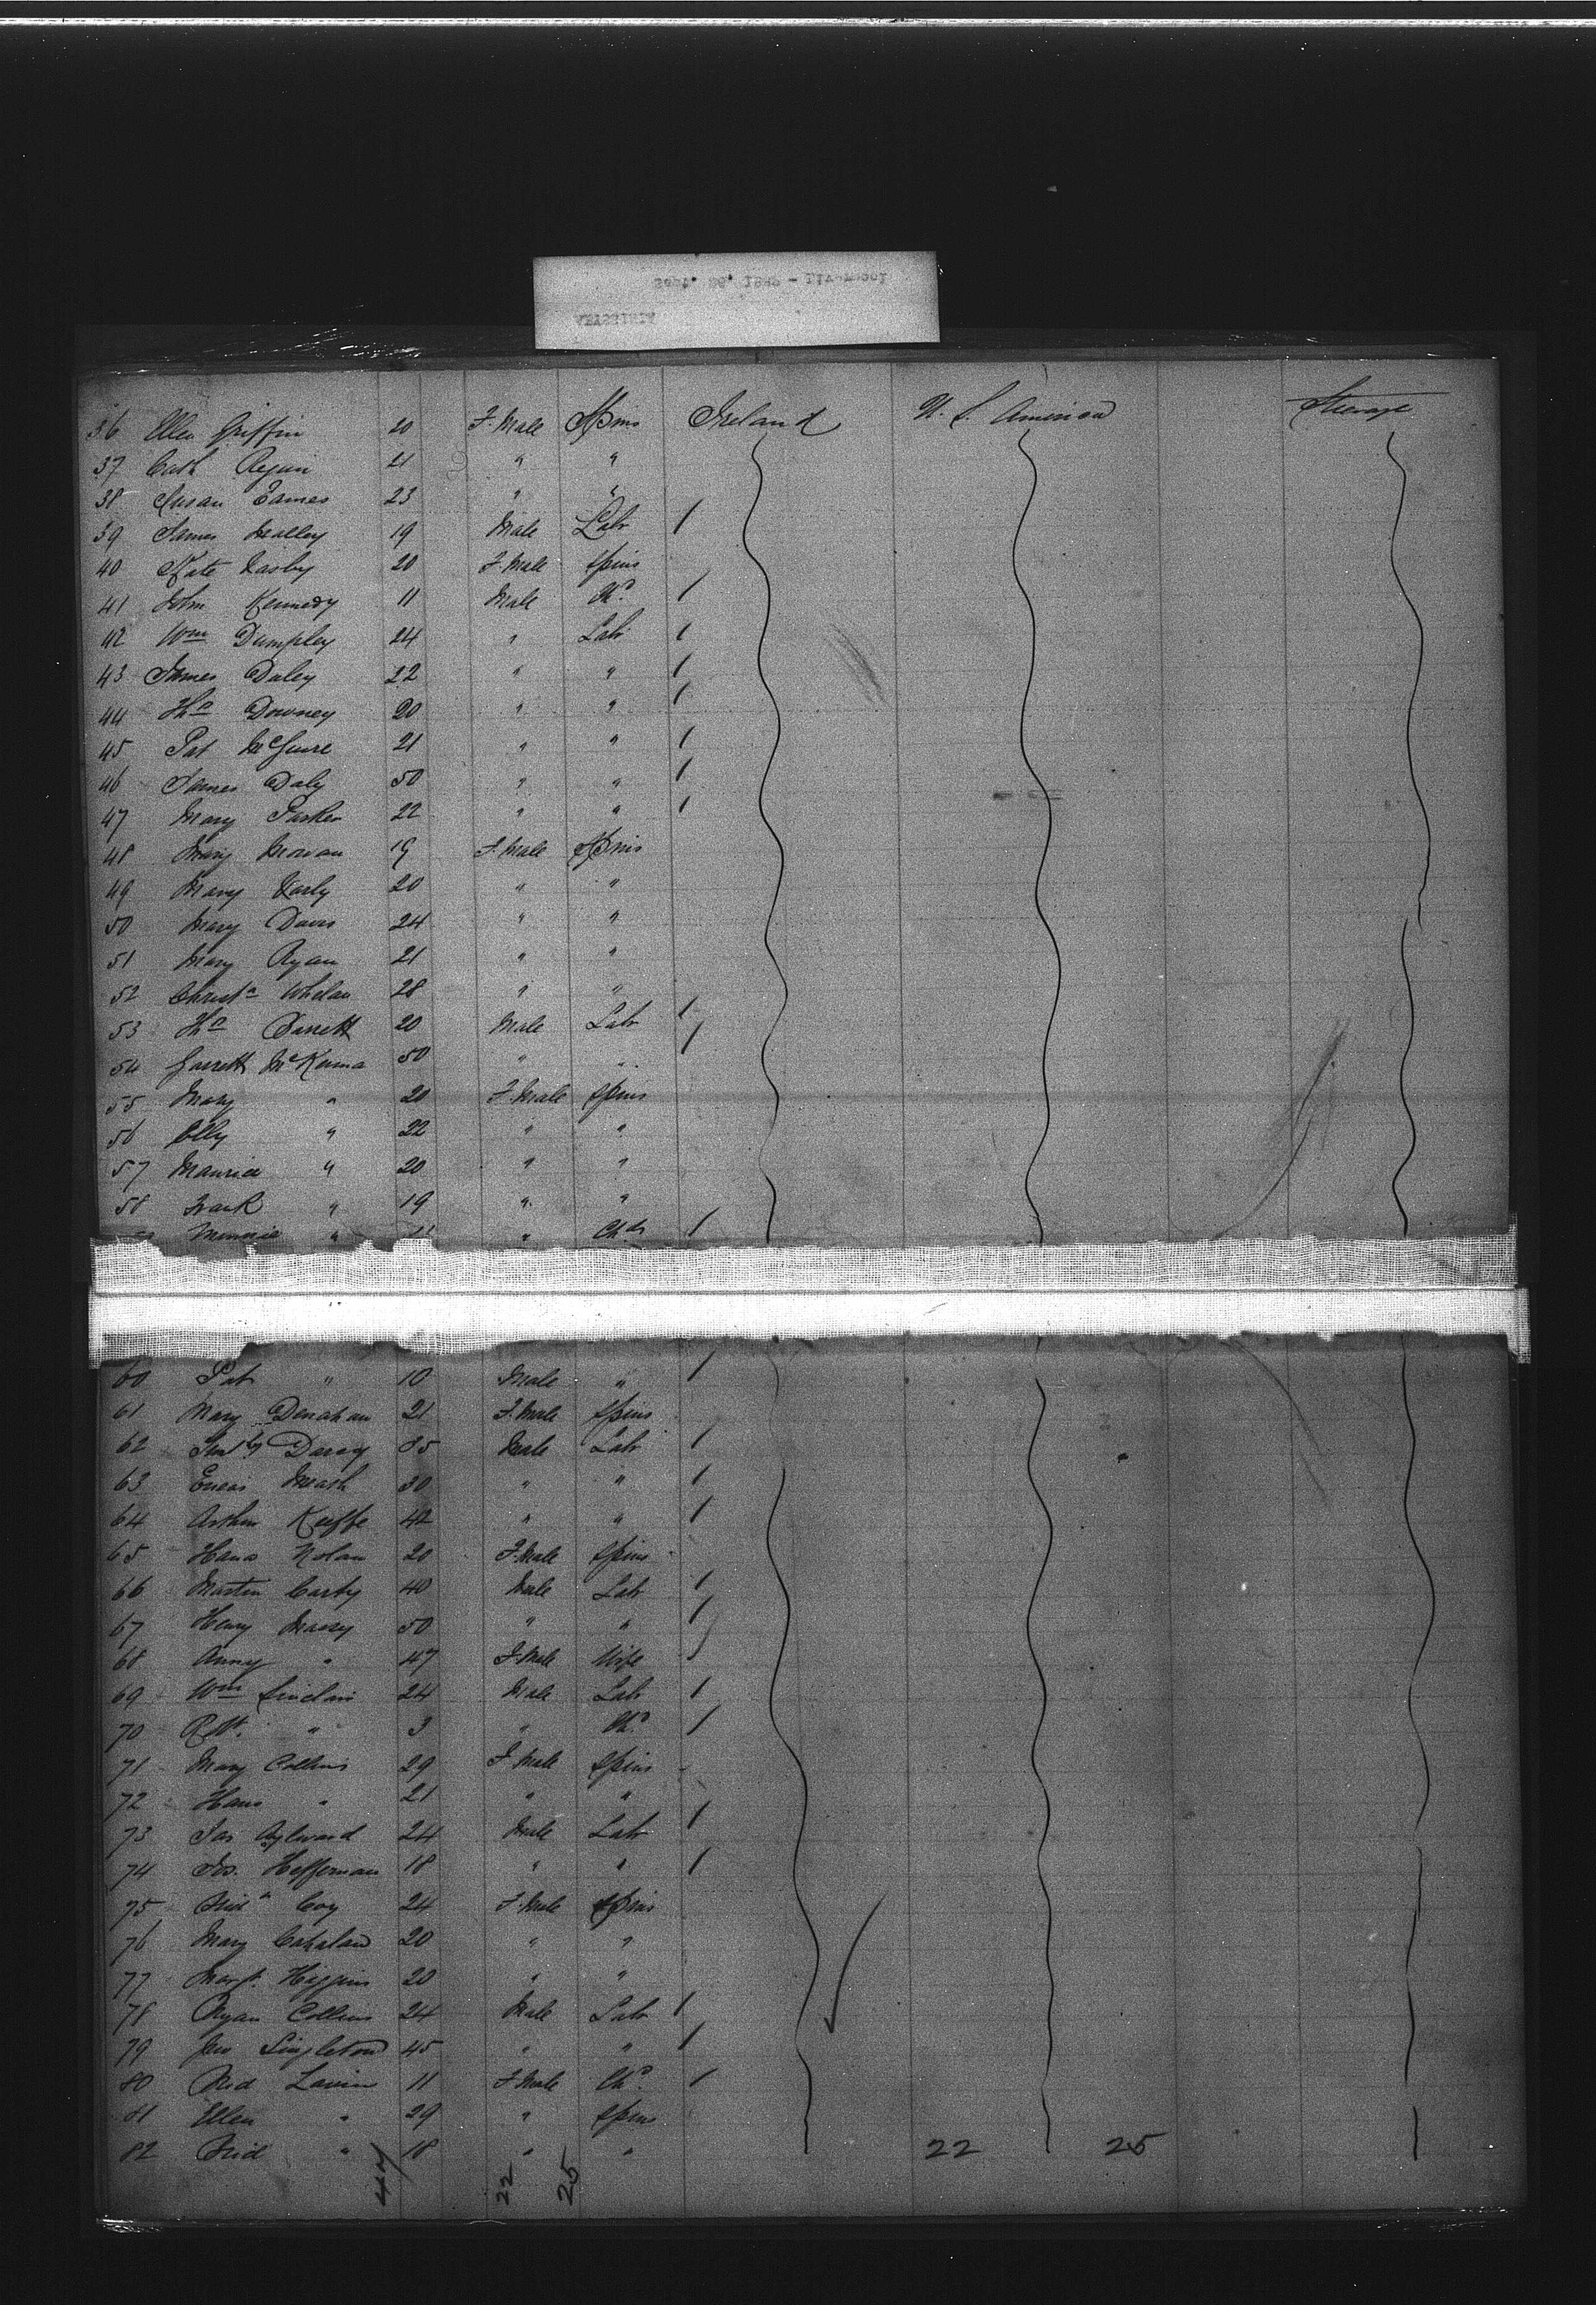 36 Ellen Griffin 20 F. Male Spins Ireland U. S. America Steerage
37 Cath Regan 21 " "
38 Susan Eames 23 " "
39 James Malley 19 Male Labr 1
40 Kate 20 F. Male Spins
41 John Kennedy 11 Male Chd 1
42 Wm Dumpley 24 " Labr 1
43 James Daley 22 " " 1
44 Tho Downey 20 " " 1
45 Pat McGuire 21 " " 1
46 James Daly 50 " " 1
47 Mary Parker 22 " " 1
48 Mary Moran 19 F. Male Spins
49 Mary 20 " "
50 Mary Davis 24 " "
51 Mary Ryan 21 " "
52 Christa Whelan 28 " "
53 Tho 20 Male Labr 1
54 Garrett McKenna 50 " " 1
55 Mary " 20 F. Male Spins
56 Elly " 22 " "
57 Maurice " 20 " "
58 " 19 " "
Minnie " 11 " Chds 1
60 Pat " 10 Male " 1
61 Mary Denahan 21 F. Male Spins
62 Darcy 35 Male Labr 1
63 Meath 30 " " 1
64 Arthur Keeffe 42 " " 1
65 Hana Nolan 20 F. Male Spins
66 Martin Carty 40 Male Labr 1
67 Henry Massy 50 " " 1
68 Anny " 47 F. Male Wife
69 Wm Sinclair 24 Male Labr 1
70 Robt. " 3 " Chd 1
71 Mary Collins 29 F. Male Spins
72 Hana " 21 " "
73 Jas Aylward 24 Male Labr 1
74 Jos. Heffernan 18 " " 1
75 Coy 24 F. Male Spins
76 Mary Cahalan 20 " "
77 Margt. Higgins 20 " "
78 Ryan Collins 24 Male Labr 1
79 Jno Singleton 45 " " 1
80 Lavin 11 F. Male Chd 1
81 Ellen " 29 " Spins
82 " 18 " " 22 25
47 22 25